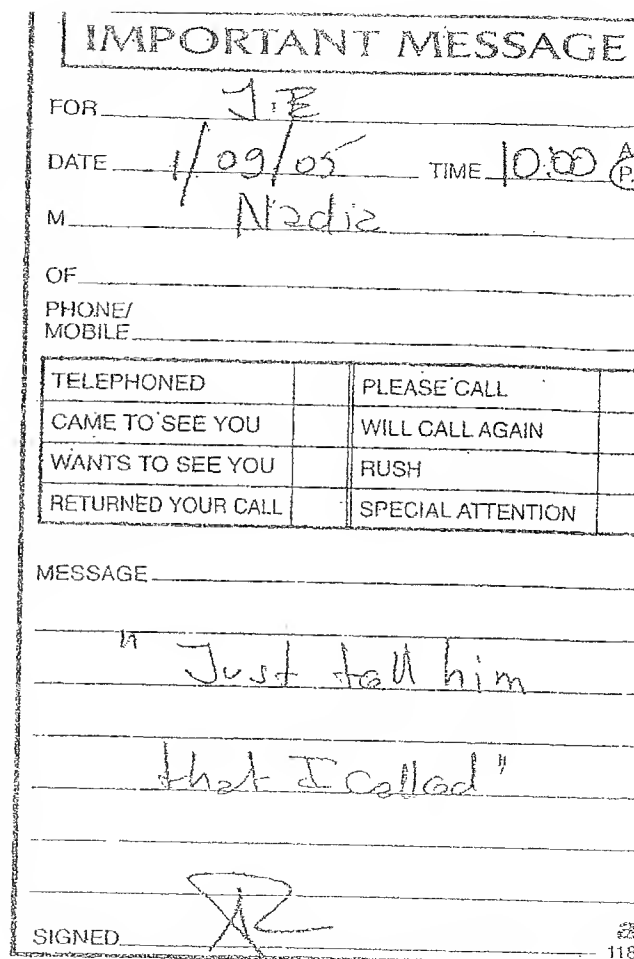 IMPORTANT MESSAGE
FOR J.E
DATE 1/09/05 TIME 10:00 A
P.
M Nadia
OF
PHONE/
MOBILE
TELEPHONED PLEASE CALL
CAME TO SEE YOU WILL CALL AGAIN
WANTS TO SEE YOU RUSH
RETURNED YOUR CALL SPECIAL ATTENTION
MESSAGE
" Just tell him
that I called"
SIGNED
118